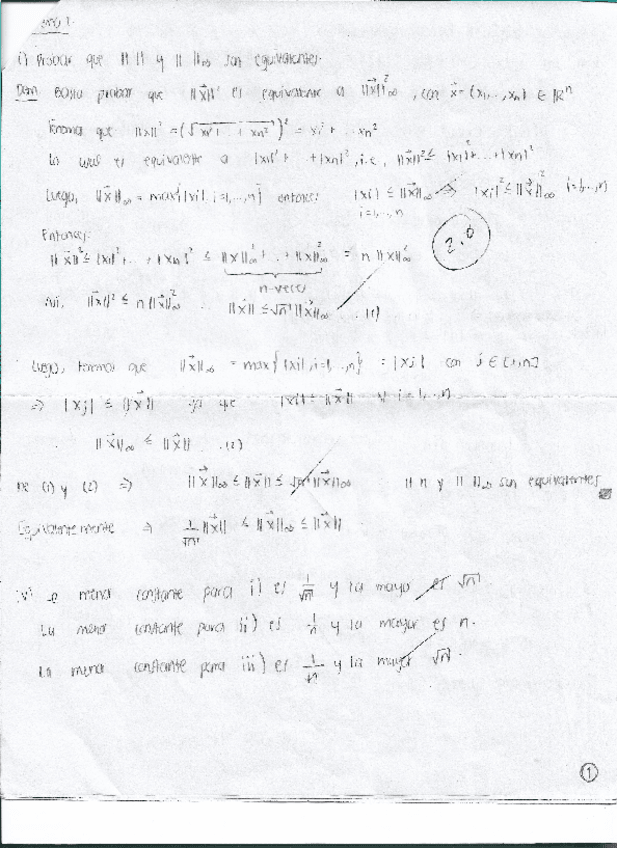 i) Probar que || || y || ||∞ son equivalentes.
Dem Basta probar que ||x⃗||² es equivalente a ||x⃗||²∞, con x⃗ = (x₁,...,xₙ) ∈ ℝⁿ
Tenemos que ||x||² = (√x₁² + + xₙ²)² = x₁² + xₙ²
Lo cual es equivalente a |x₁|² + +|xₙ|², i.e., ||x⃗||² ≤ |x₁|² +...+ |xₙ|²
Luego, ||x⃗||∞ = max{|xi|, i=1,...,n} entonces |xi| ≤ ||x⃗||∞ ⇒ |xi|² ≤ ||x⃗||²∞ i=1,...,n
i=1,...,n
Entonces:
||x⃗||² ≤ |x₁|² +...+ |xₙ|² ≤ ||x⃗||²∞ +...+ ||x⃗||²∞ = n ||x⃗||²∞
2.0
n-veces
Así, ||x⃗||² ≤ n ||x⃗||²∞ ||x⃗|| ≤ √n ||x⃗||∞ ...(1)
Luego, tenemos que ||x⃗||∞ = max{|xi|, i=1,...,n} = |xj| con j ∈ [1,n]
⇒ |xj| ≤ ||x⃗|| ya que |xi| ≤ ||x⃗|| ∀ i=1,...,n
||x⃗||∞ ≤ ||x⃗|| ...(2)
De (1) y (2) ⇒ ||x⃗||∞ ≤ ||x⃗|| ≤ √n ||x⃗||∞ || || y || ||∞ son equivalentes
Equivalentemente ⇒ 1/√n ||x⃗|| ≤ ||x⃗||∞ ≤ ||x⃗||
menor constante para i) es 1/√n y la mayor es √n
La menor constante para ii) es 1/n y la mayor es n.
La menor constante para iii) es 1/√n y la mayor √n
1